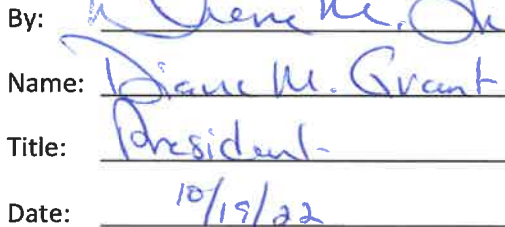 By: Diane M.
Name: Diane M. Grant
Title: President
Date: 10/19/22